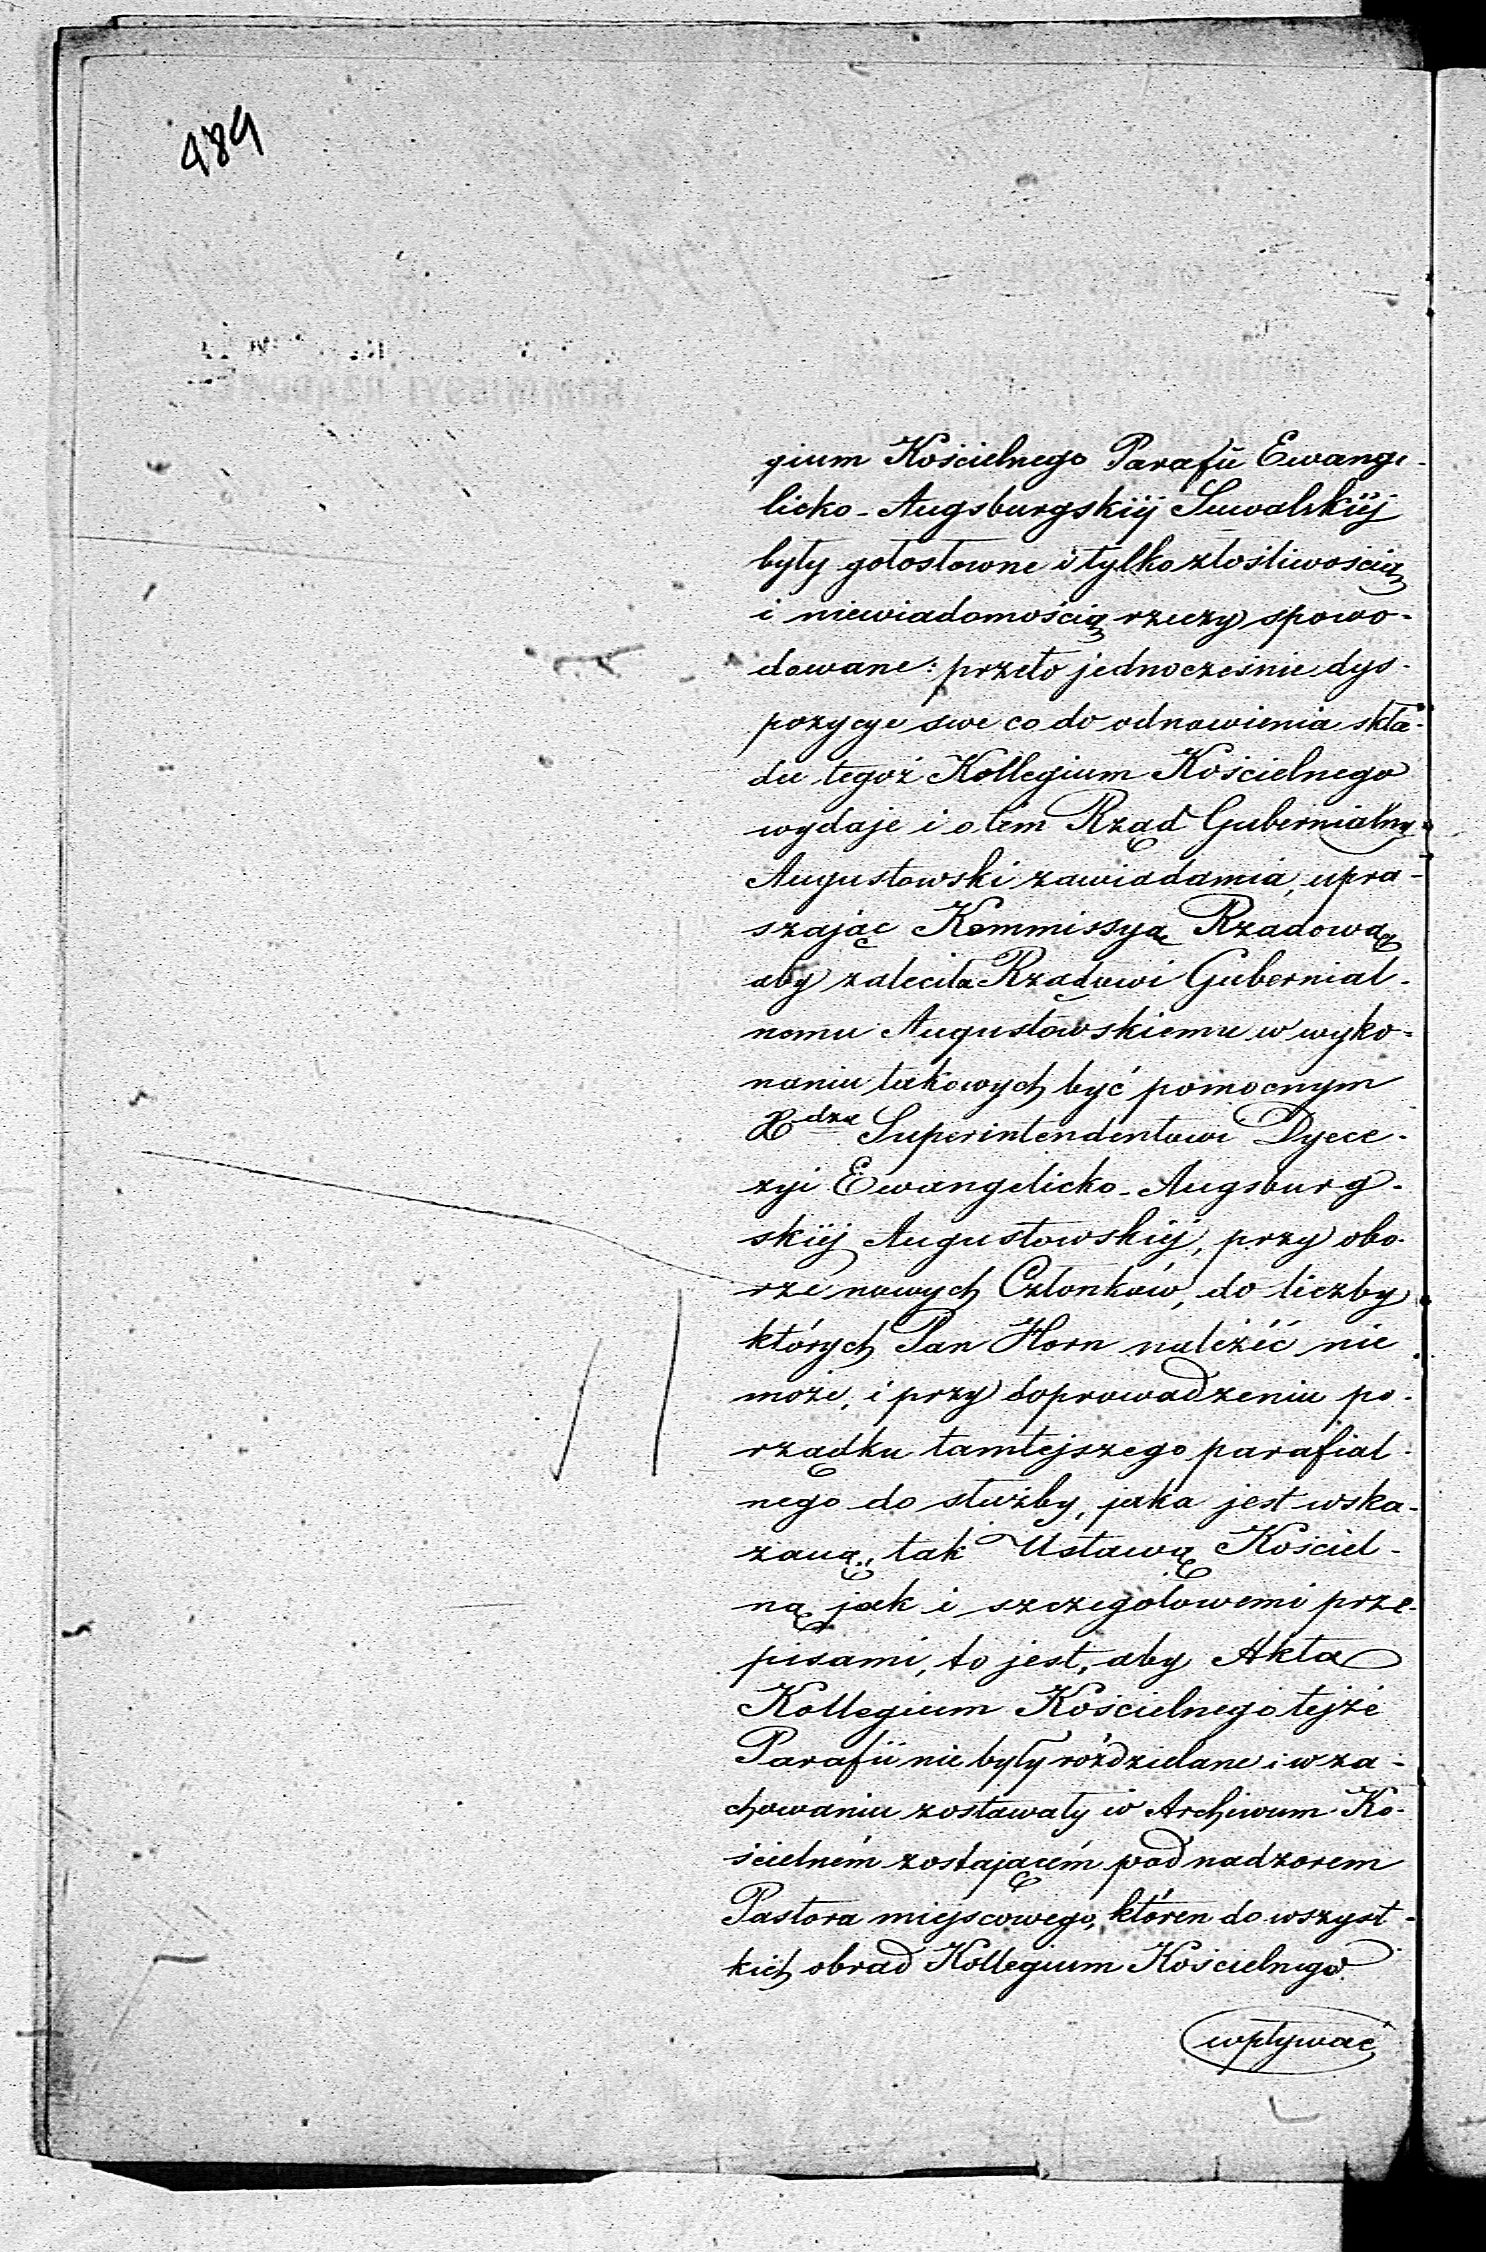 489
gium Kościelnego Parafii Ewange-
licko-Augsburgskiéj Suwalskiéj
były gołosłowne i tylko złośliwością
i niewiadomością rzeczy spowo-
dowane: przeto jednocześnie dys-
pozycye swe co do odnowienia skła-
du tegoż Kollegium Kościelnego
wydaje i o tém Rząd Gubernialny
Augustowski zawiadamia, upra-
szając Kommissyą Rządową
aby zaleciła Rządowi Gubernial-
nemu Augustowskiemu w wyko-
naniu takowych być pomocnym
Xdzu Superintendentowi Dyece-
zyi Ewangelicko-Augsburg-
skiéj Augustowskiéj, przy obo-
rze nowych Członków, do liczby
których Pan Horn należéć nie
może, i przy doprowadzeniu po-
rządku tamtejszego parafial-
nego do służby, jaka jest wska-
zaną, tak Ustawą Kościel-
ną jak i szczegółowemi prze-
pisami, to jest, aby Akta
Kollegium Kościelnego tejże
Parafii nie były rozdzielane i w za-
chowaniu zostawały w Archiwum Ko-
ścielném zostającém pod nadzorem
Pastora miejscowego, któren do wszyst-
kich obrad Kollegium Kościelnego
wpływać